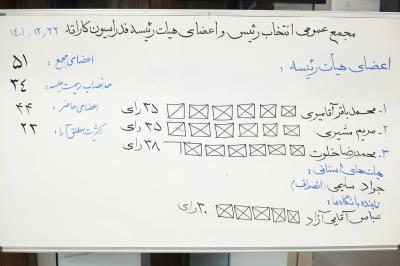 مجمع عمومی انتخاب رئیس و اعضای هیات رئیسه فدراسیون کاراته ۱۴۰۱/۱۲/۲۲
اعضای هیأت رئیسه:
۱- محمد باقر آقامیری ۳۵ رای
۲- مریم مشیری ۳۵ رای
۳- محمدرضا خلوت ۳۸ رای
هیات های استانی:
جواد سلیمی (انصراف)
نماینده باشگاه ها:
عباس آقایی آزاد ۳۰ رای
اعضای مجمع: ۵۱
حد نصاب رسمیت جلسه: ۳۴
اعضای حاضر: ۴۴
اکثریت مطلق آراء: ۲۳